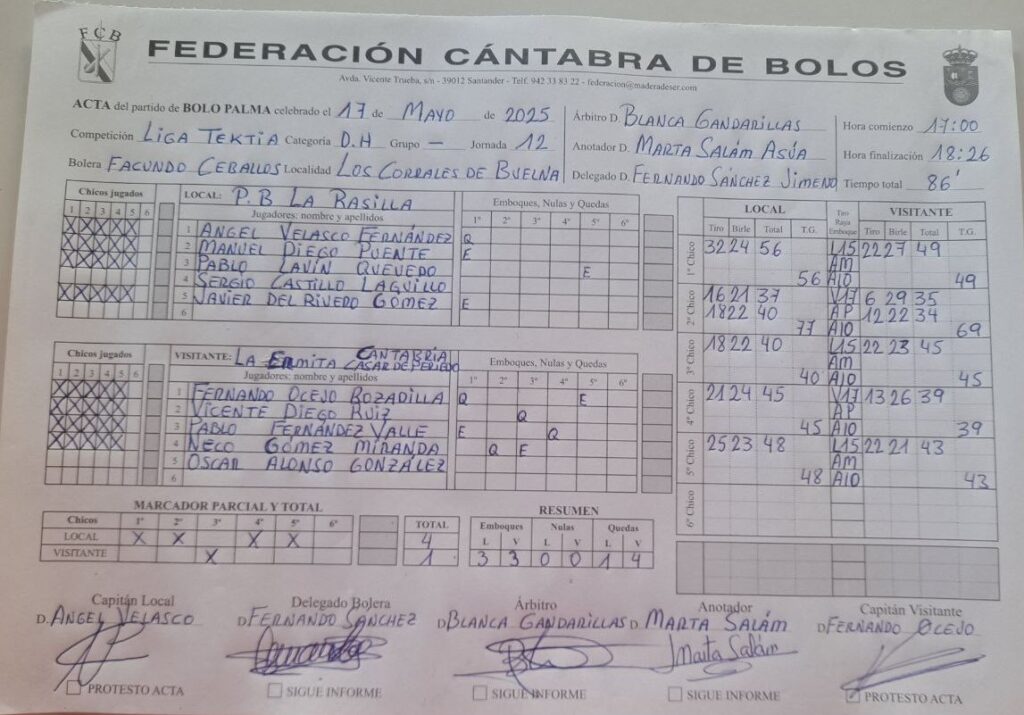 FCB
FEDERACIÓN CÁNTABRA DE BOLOS
Avda. Vicente Trueba, s/n - 39012 Santander - Telf. 942 33 83 22 - federacion@maderadeser.com
ACTA del partido de BOLO PALMA celebrado el 17 de MAYO de 2025
Competición LIGA TEKTIA Categoría D.H Grupo — Jornada 12
Bolera FACUNDO CEBALLOS Localidad LOS CORRALES DE BUELNA
Árbitro D. BLANCA GANDARILLAS
Anotador D. MARTA SALÁM ASÚA
Delegado D. FERNANDO SÁNCHEZ JIMENO
Hora comienzo 17:00
Hora finalización 18:26
Tiempo total 86'
Chicos jugados
1 2 3 4 5 6
LOCAL: P.B LA RASILLA
Jugadores: nombre y apellidos
Emboques, Nulas y Quedas
1º 2º 3º 4º 5º 6º
1 ANGEL VELASCO FERNÁNDEZ Q
2 MANUEL DIEGO PUENTE E
3 PABLO LAVÍN QUEVEDO E
4 SERGIO CASTILLO LAGUILLO
5 JAVIER DEL RIVERO GÓMEZ E
6
Chicos jugados
1 2 3 4 5 6
VISITANTE: LA ERMITA CANTABRIA CASAR DE PERIEDO
Jugadores: nombre y apellidos
Emboques, Nulas y Quedas
1º 2º 3º 4º 5º 6º
1 FERNANDO OCEJO BOZADILLA Q E
2 VICENTE DIEGO RUIZ Q
3 PABLO FERNÁNDEZ VALLE E Q
4 NECO GÓMEZ MIRANDA Q E
5 OSCAR ALONSO GONZÁLEZ
6
LOCAL Tiro Raya Emboque VISITANTE
Tiro Birle Total T.G. Tiro Birle Total T.G.
1º Chico 32 24 56 L15 22 27 49
AM
56 A10 49
2º Chico 16 21 37 V17 6 29 35
18 22 40 AP 12 22 34
77 A10 69
3º Chico 18 22 40 L15 22 23 45
AM
40 A10 45
4º Chico 21 24 45 V17 13 26 39
AP
45 A10 39
5º Chico 25 23 48 L15 22 21 43
AM
48 A10 43
6º Chico
MARCADOR PARCIAL Y TOTAL
Chicos 1º 2º 3º 4º 5º 6º TOTAL
LOCAL X X X X 4
VISITANTE X 1
RESUMEN
Emboques Nulas Quedas
L V L V L V
3 3 0 0 1 4
Capitán Local
D. ANGEL VELASCO
PROTESTO ACTA
Delegado Bolera
D FERNANDO SÁNCHEZ
SIGUE INFORME
Árbitro
D BLANCA GANDARILLAS
SIGUE INFORME
Anotador
D. MARTA SALÁM
Marta Salám
SIGUE INFORME
Capitán Visitante
D FERNANDO OCEJO
PROTESTO ACTA